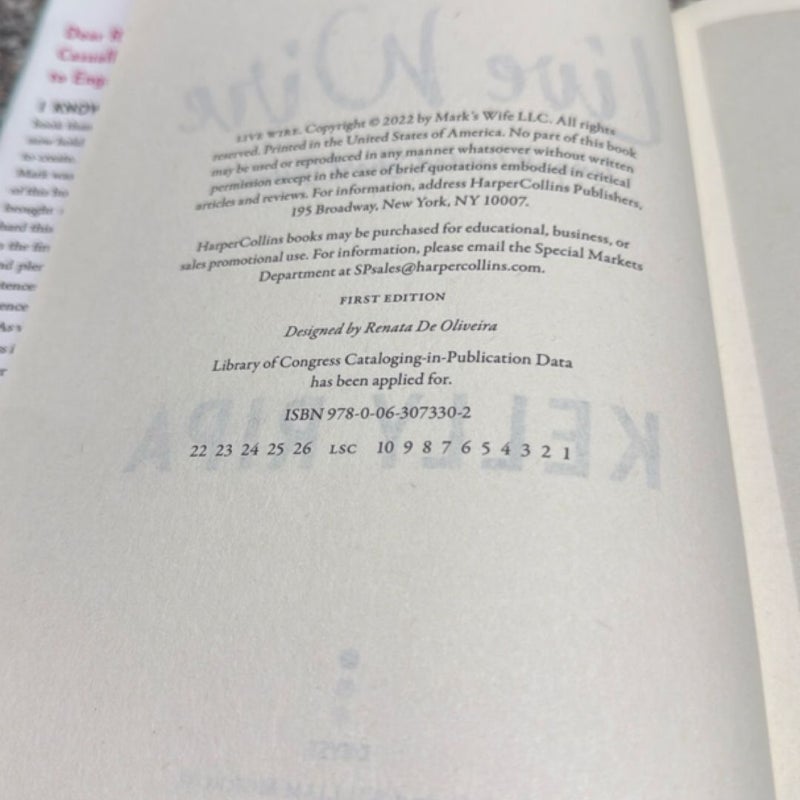 Dear
Casuall
to Eng
I KNOW
LIVE WIRE. Copyright © 2022 by Mark's Wife LLC. All rights
reserved. Printed in the United States of America. No part of this book
may be used or reproduced in any manner whatsoever without written
permission except in the case of brief quotations embodied in critical
articles and reviews. For information, address HarperCollins Publishers,
195 Broadway, New York, NY 10007.
HarperCollins books may be purchased for educational, business, or
sales promotional use. For information, please email the Special Markets
Department at SPsales@harpercollins.com.
FIRST EDITION
Designed by Renata De Oliveira
Library of Congress Cataloging-in-Publication Data
has been applied for.
ISBN 978-0-06-307330-2
22 23 24 25 26 LSC 10 9 8 7 6 5 4 3 2 1
Live Wire
KELLY RIPA